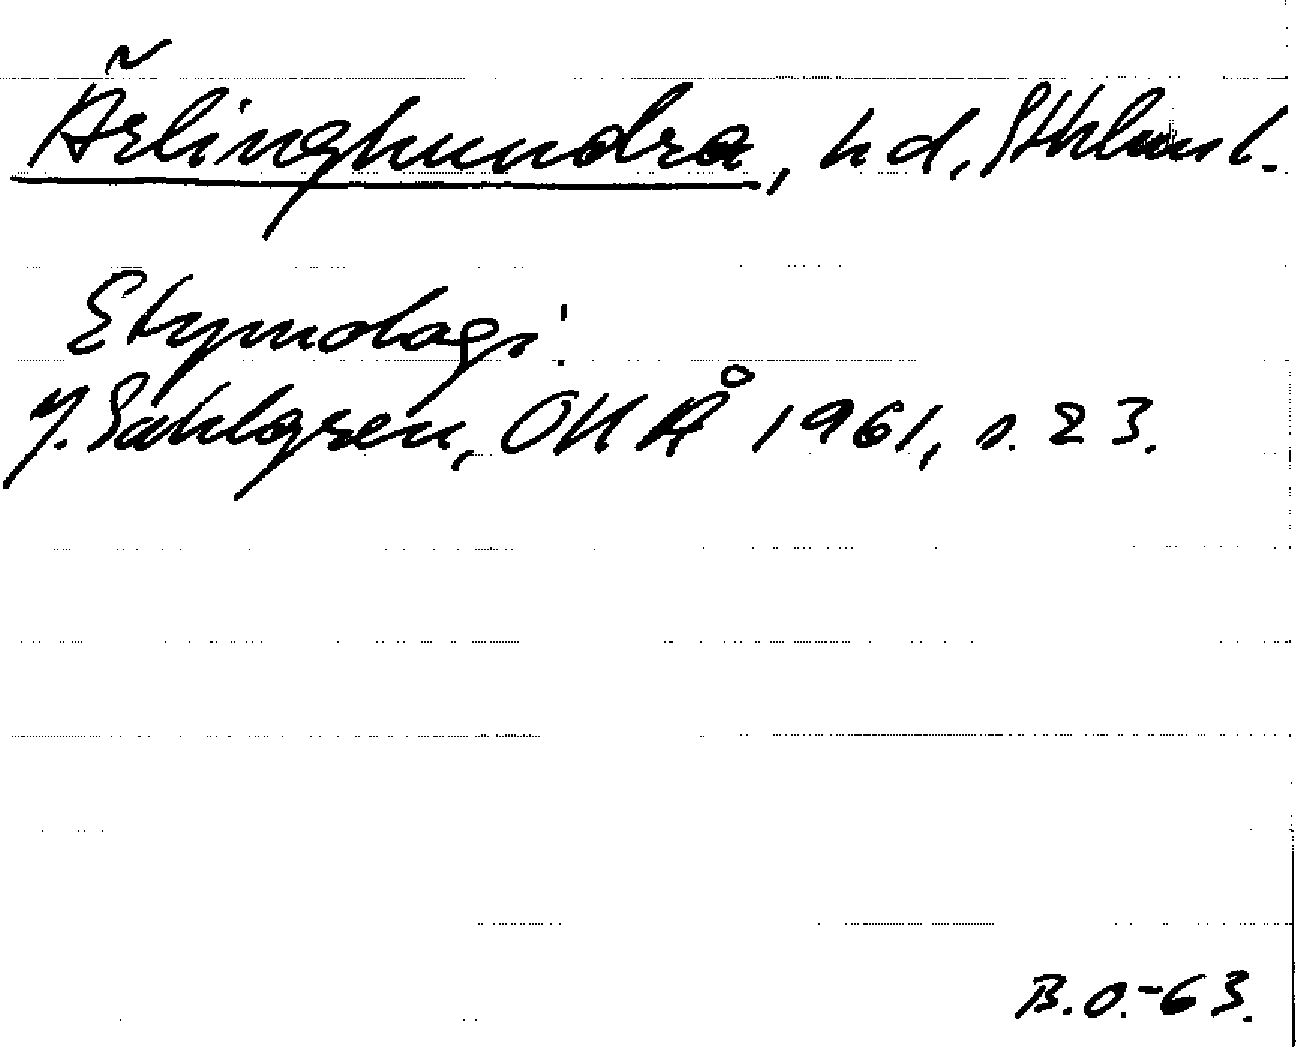 Ärlinghundra, hd, Sthlms l.
Etymologi:
J. Sahlgren, ONÅ 1961, s. 23.
B.O.-63.